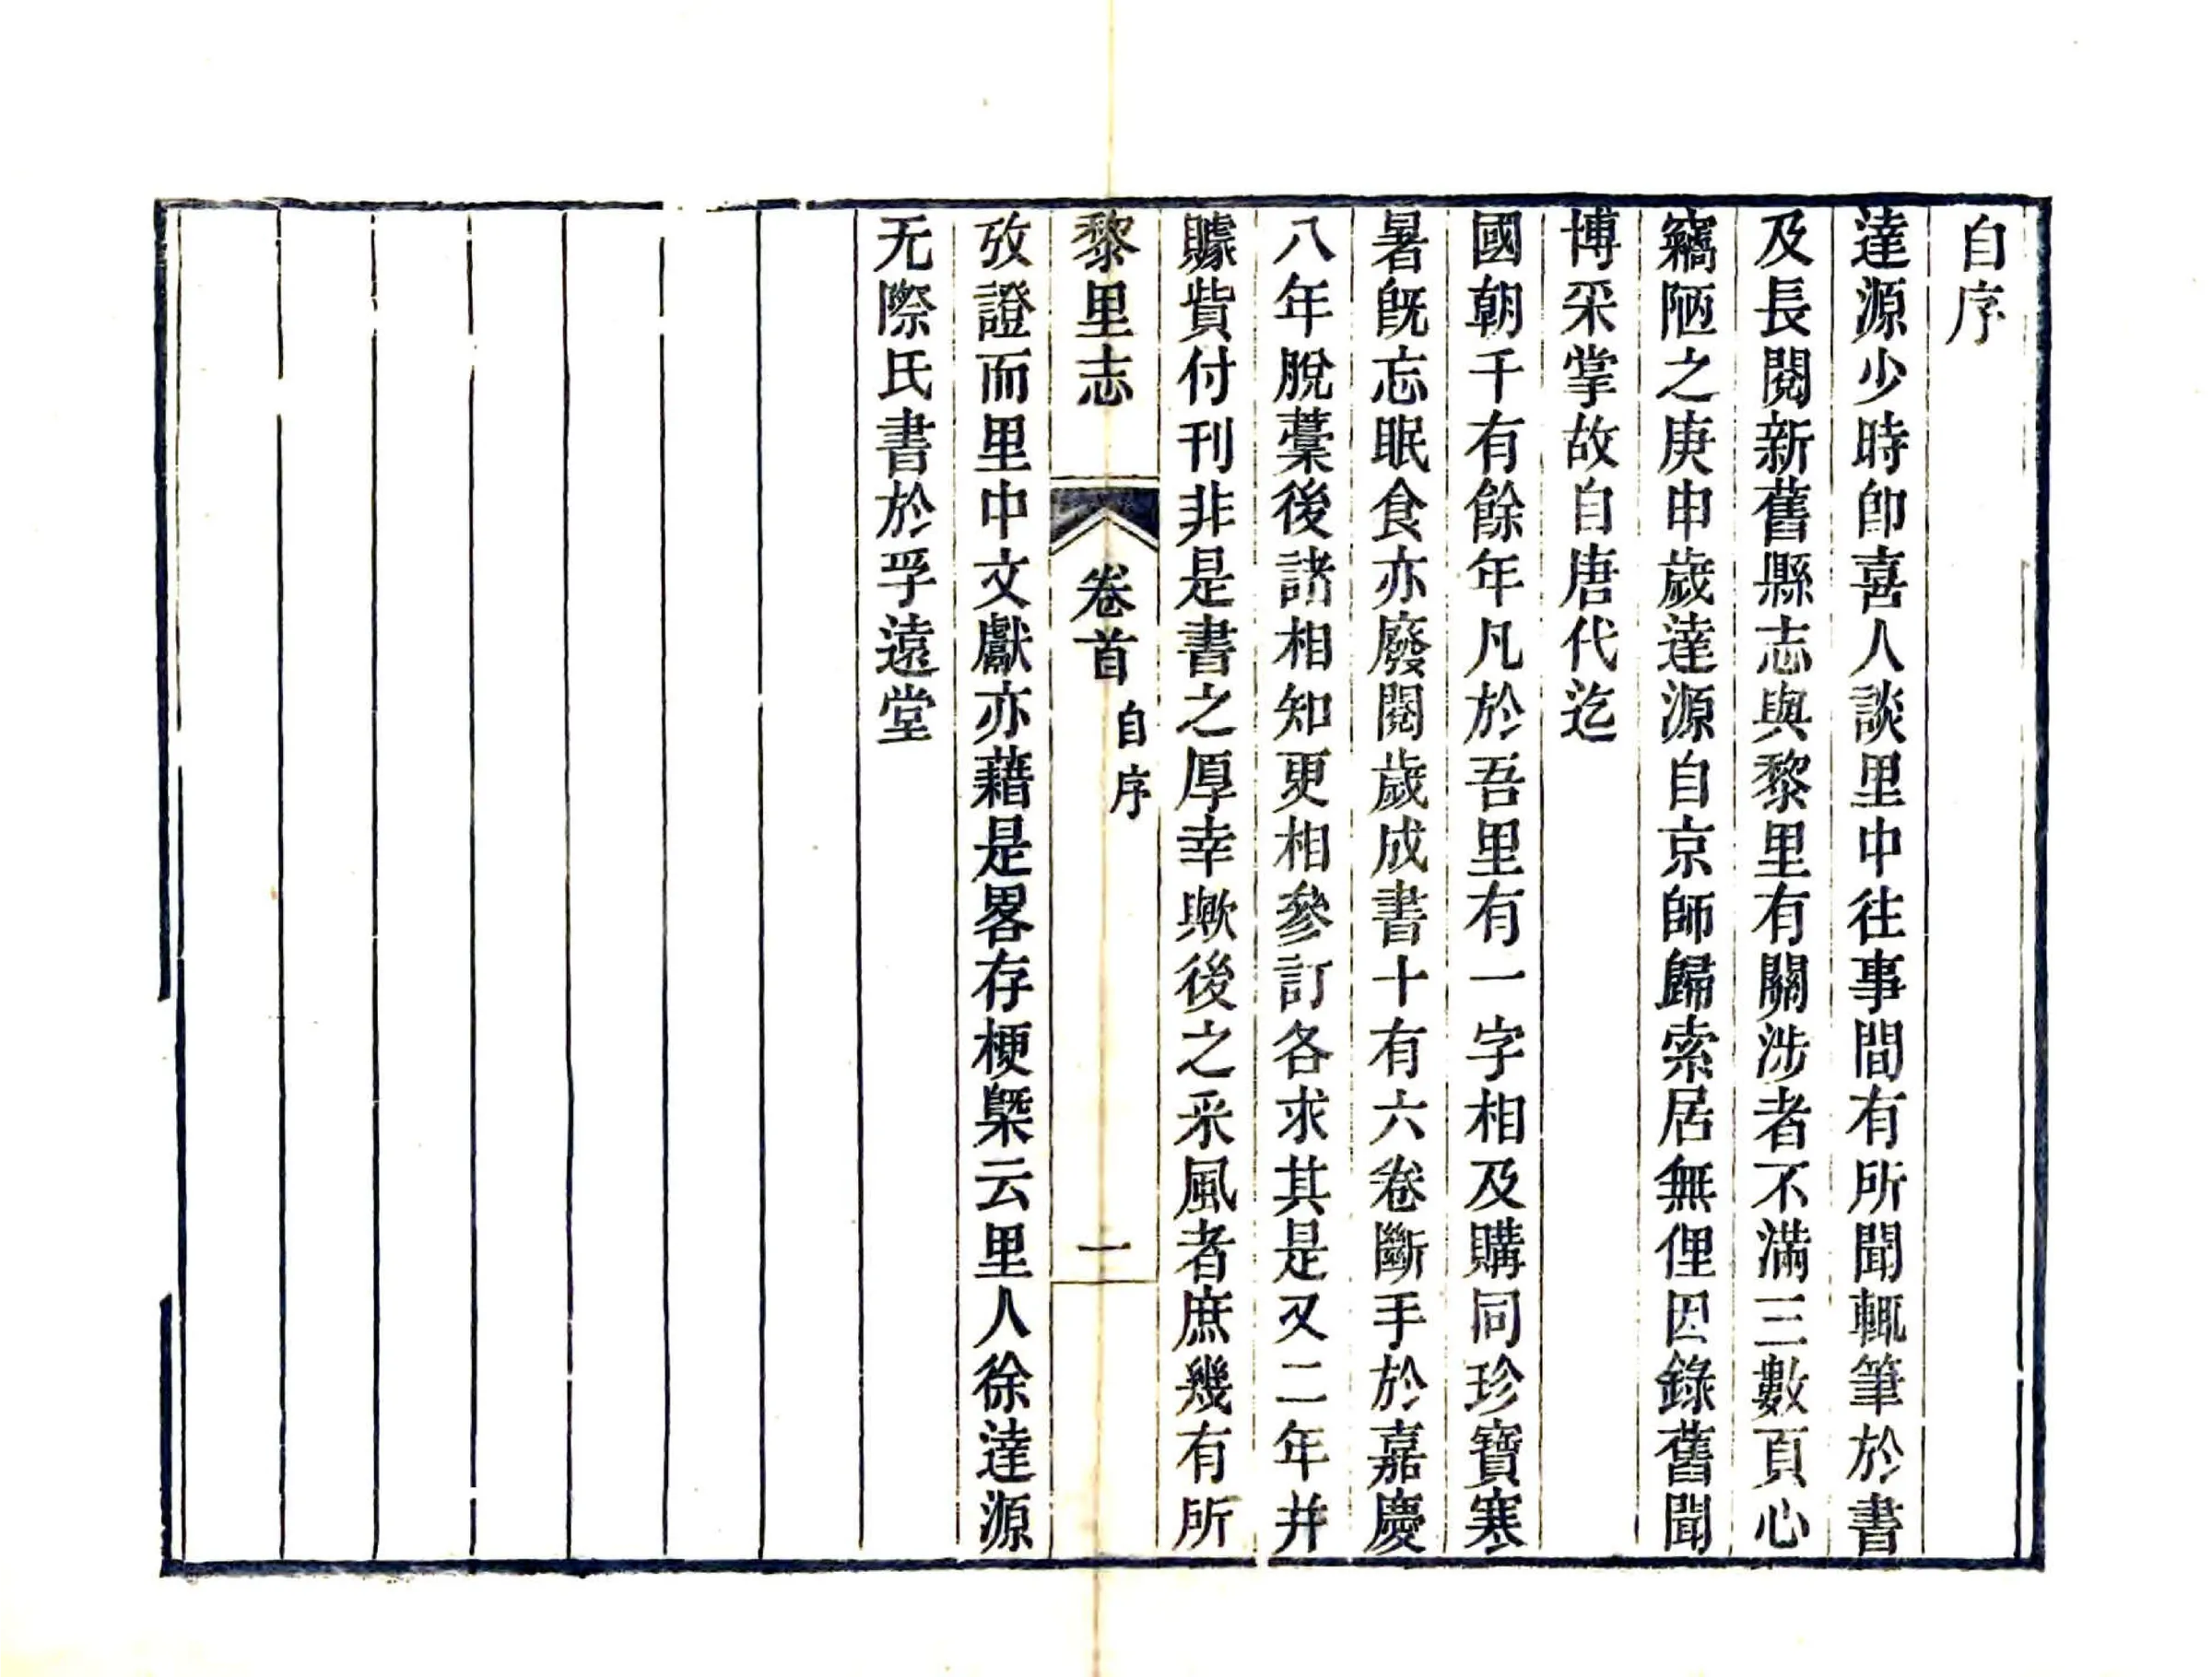 自序
達源少時卽喜人談里中往事間有所聞輒筆於書
及長閱新舊縣志與黎里有關涉者不滿三數頁心
竊陋之庚申歲達源自京師歸索居無俚因錄舊聞
博采掌故自唐代迄
國朝千有餘年凡於吾里有一字相及購同珍寶寒
暑旣忘眠食亦廢閱歲成書十有六卷斷手於嘉慶
八年脫藁後諸相知更相參訂各求其是又二年井
賕貲付刊非是書之厚幸歟後之采風者庶幾有所
黎里志
卷首
自序
一
攷證而里中文獻亦藉是畧存梗槩云里人徐達源
无際氏書於孚遠堂